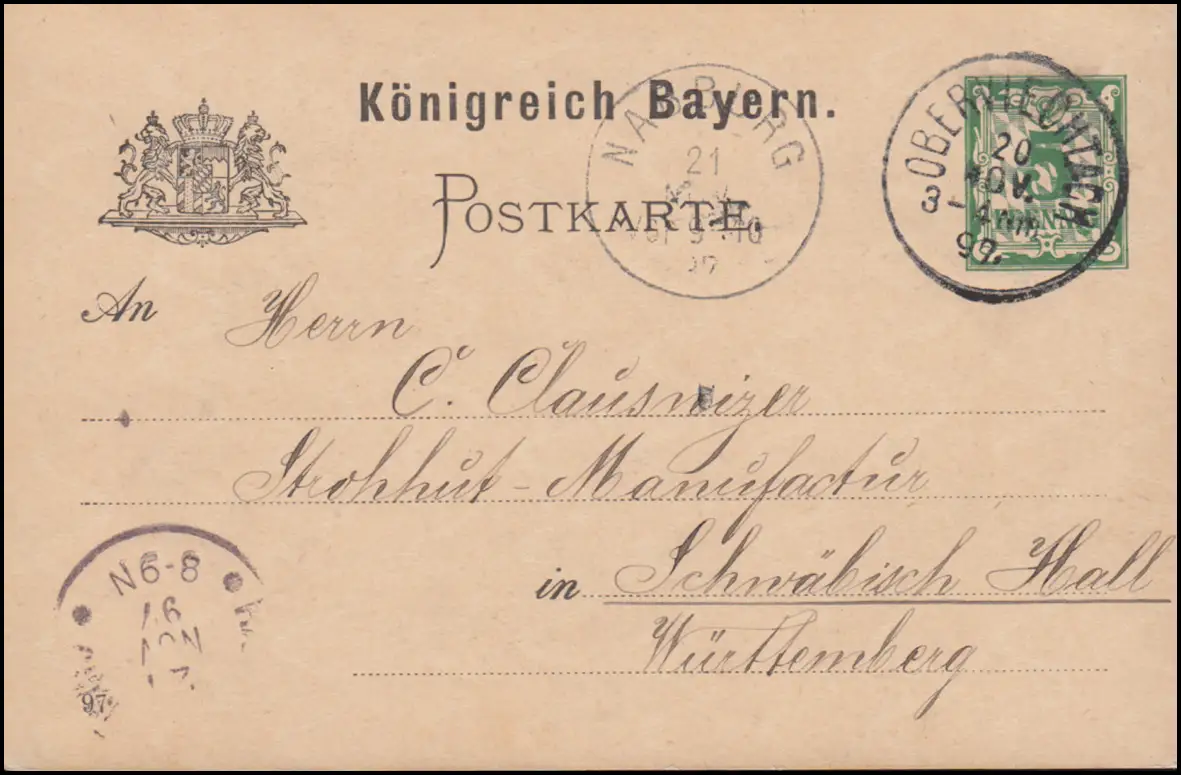 Königreich Bayern.
POSTKARTE.
NABBURG
21
OBERVIECHTACH
20
NOV.
4 Nm.
5
An Herrn
C. Clausnizer
Strohhut-Manufactur
in Schwäbisch Hall
Württemberg
N6-8
97